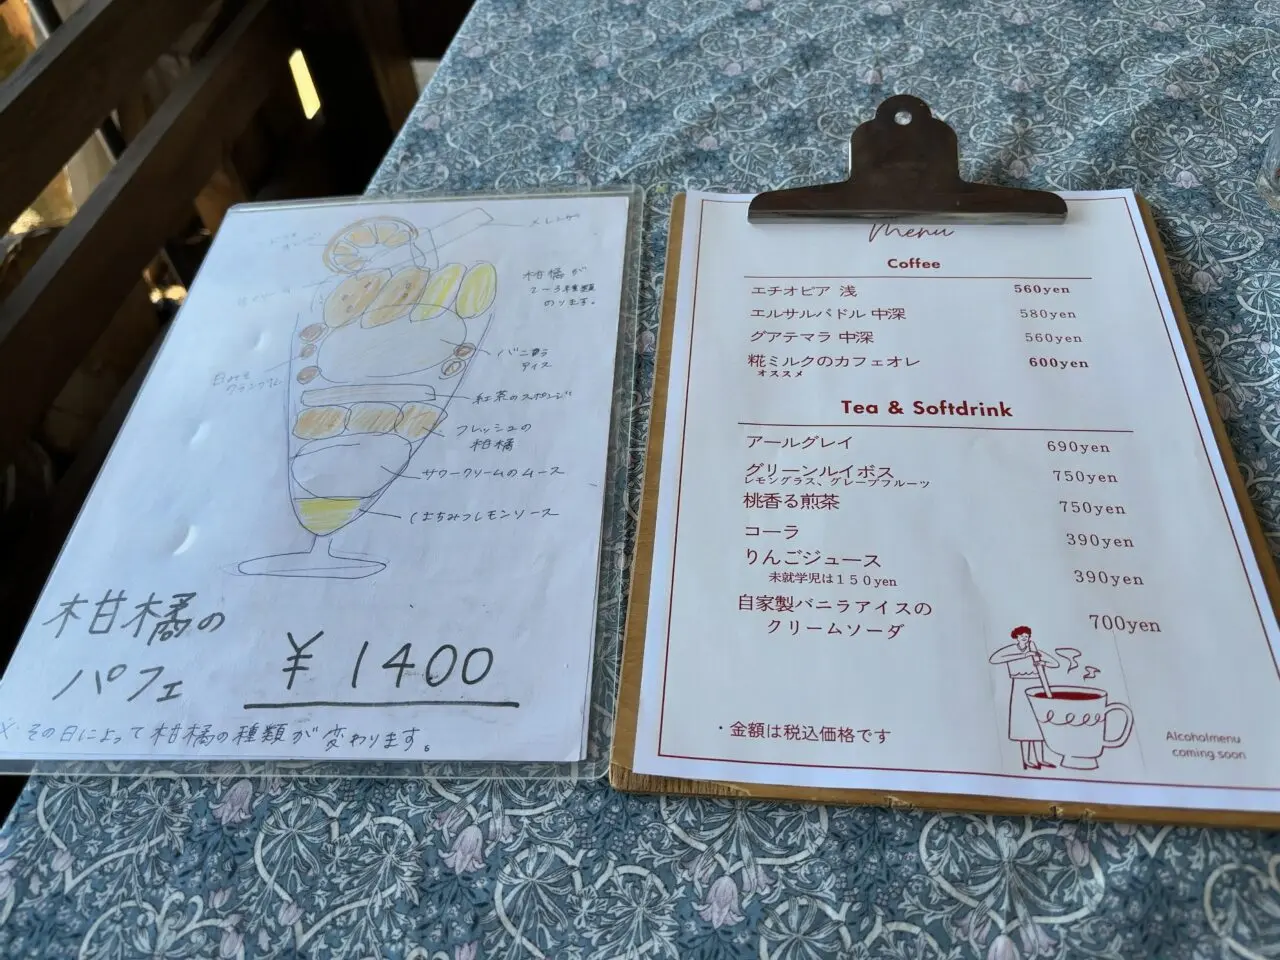 メレンゲ
柑橘が
2〜3種類
のります。
バニラ
アイス
白みそ
クランブル
紅茶のスポンジ
フレッシュの
柑橘
サワークリームのムース
はちみつレモンソース
柑橘の
パフェ
¥1400
※その日によって柑橘の種類が変わります。
Menu
Coffee
エチオピア 浅 560yen
エルサルバドル 中深 580yen
グアテマラ 中深 560yen
糀ミルクのカフェオレ 600yen
オススメ
Tea & Softdrink
アールグレイ 690yen
グリーンルイボス 750yen
レモングラス、グレープフルーツ
桃香る煎茶 750yen
コーラ 390yen
りんごジュース 390yen
未就学児は１５０yen
自家製バニラアイスの
クリームソーダ 700yen
・金額は税込価格です
Alcoholmenu
coming soon